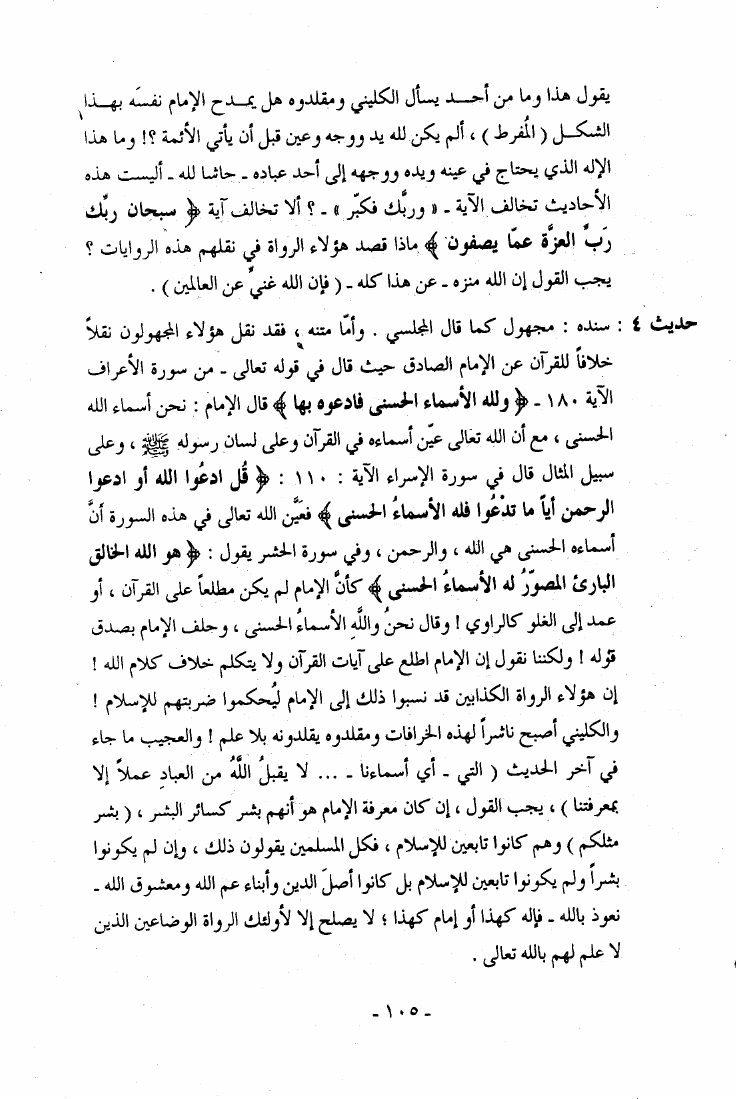 يقول هذا وما من أحـــد يسأل الكليني ومقلدوه هل يمــدح الإمام نفسَه بهــذا
الشكــل ( المُفرط ) ، ألم يكن لله يد ووجه وعين قبل أن يأتي الأئمة ؟! وما هذا
الإله الذي يحتاج في عينه ويده ووجهه إلى أحد عباده ـ حاشا لله ـ أليست هذه
الأحاديث تخالف الآية ـ « وربَّك فكبّر » ـ ؟ ألا تخالف آية ﴿ سبحان ربِّك
رَبِّ العزَّة عمّا يصفون ﴾ ماذا قصد هؤلاء الرواة في نقلهم هذه الروايات ؟
يجب القول إن الله منزه ـ عن هذا كله ـ ( فإن الله غنيٌّ عن العالمين ) .
حديث ٤ : سنده : مجهول كما قال المجلسي . وأمّا متنه ، فقد نقل هؤلاء المجهولون نقلاً
خلافاً للقرآن عن الإمام الصادق حيث قال في قوله تعالى ـ من سورة الأعراف
الآية ١٨٠ ـ ﴿ ولله الأسماء الحسنى فادعوه بها ﴾ قال الإمام : نحن أسماء الله
الحسنى ، مع أن الله تعالى عيّن أسماءه في القرآن وعلى لسان رسوله ﷺ ، وعلى
سبيل المثال قال في سورة الإسراء الآية : ١١٠ : ﴿ قُل ادعُوا الله أو ادعوا
الرحمن أياً ما تدْعُوا فله الأسماءُ الحسنى ﴾ فعَيَّن الله تعالى في هذه السورة أنَّ
أسماءه الحسنى هي الله ، والرحمن ، وفي سورة الحشر يقول : ﴿ هو الله الخالق
البارئ المصوّرُ له الأسماءُ الحسنى ﴾ كأنَّ الإمام لم يكن مطلعاً على القرآن ، أو
عمد إلى الغلو كالراوي ! وقال نحنُ واللَّهِ الأسماءُ الحسنى ، وحلف الإمام بصدق
قوله ! ولكننا نقول إن الإمام اطلع على آيات القرآن ولا يتكلم خلاف كلام الله !
إن هؤلاء الرواة الكذابين قد نسبوا ذلك إلى الإمام ليُحكموا ضربتهم للإسلام !
والكليني أصبح ناشراً لهذه الخرافات ومقلدوه يقلدونه بلا علم ! والعجيب ما جاء
في آخر الحديث ( التي ـ أي أسماءنا ـ ... لا يقبلُ اللَّهُ من العبادِ عملاً إلا
بمعرفتنا ) ، يجب القول ، إن كان معرفة الإمام هو أنهم بشر كسائر البشر ، ( بشر
مثلكم ) وهم كانوا تابعين للإسلام ، فكل المسلمين يقولون ذلك ، وإن لم يكونوا
بشراً ولم يكونوا تابعين للإسلام بل كانوا أصلَ الدين وأبناء عم الله ومعشوق الله ـ
نعوذ بالله ـ فإله كهذا أو إمام كهذا ؛ لا يصلح إلا لأولئك الرواة الوضاعين الذين
لا علم لهم بالله تعالى .
ـ ١٠٥ ـ